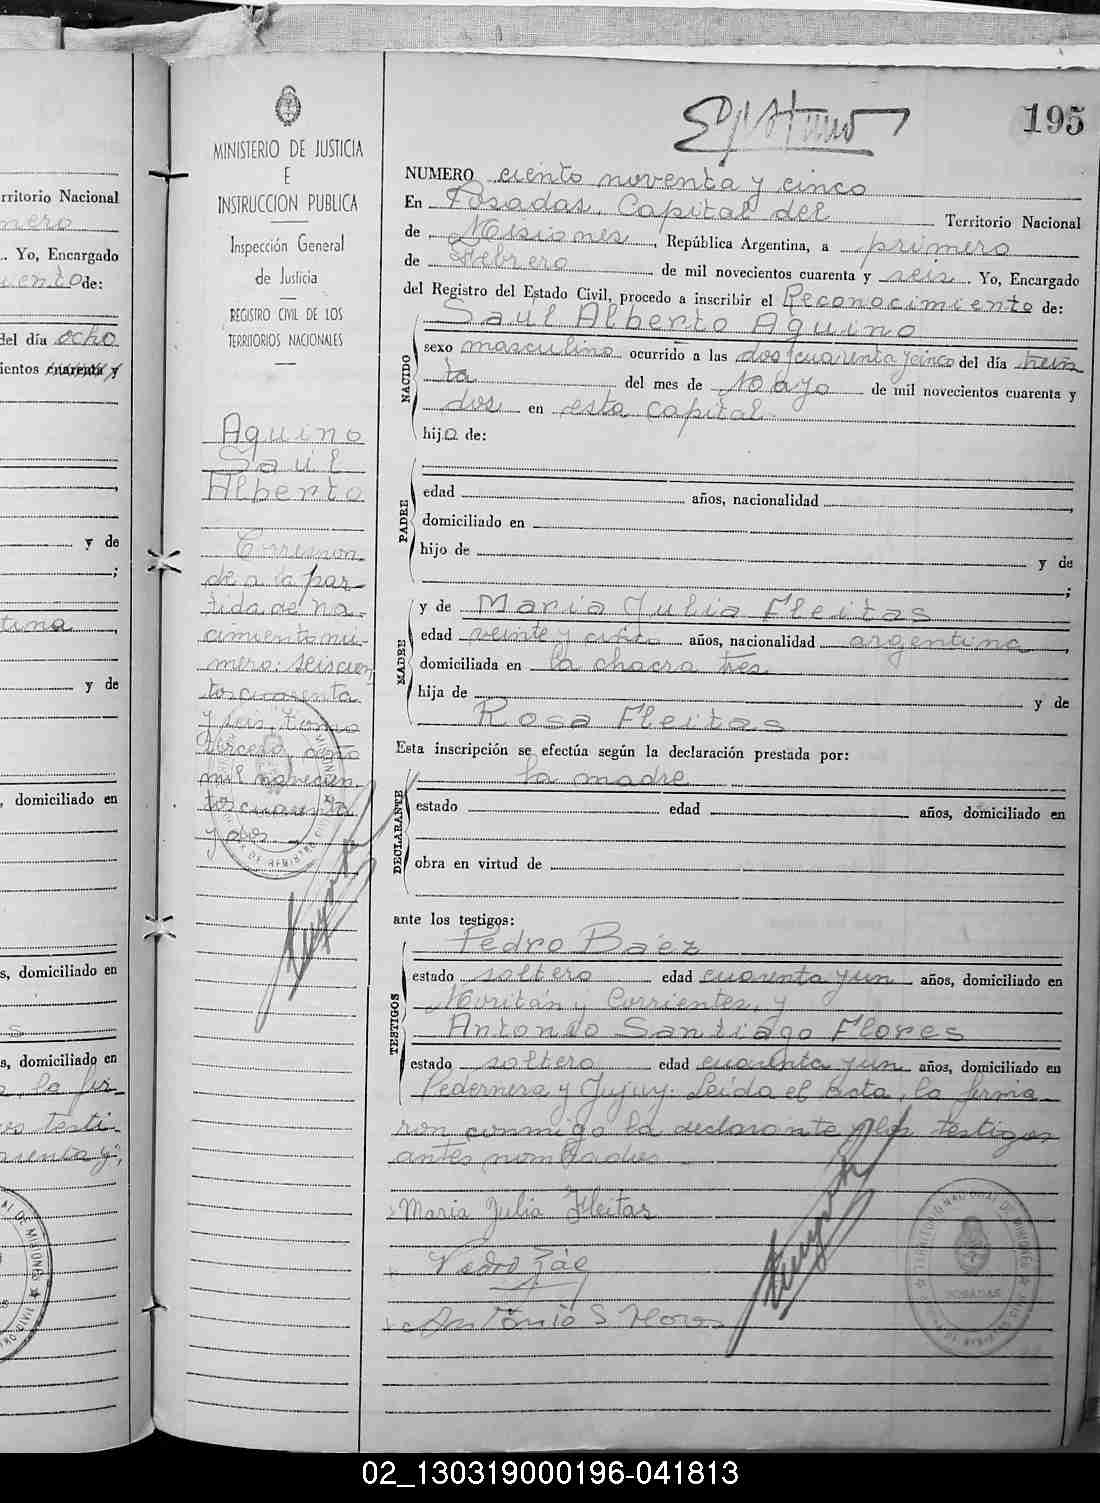 195
MINISTERIO DE JUSTICIA
E
INSTRUCCION PUBLICA
Inspección General
de Justicia
REGISTRO CIVIL DE LOS
TERRITORIOS NACIONALES
Aquino
Saul
Alberto
Correspon
de a la par
tida de na-
cimiento nu-
mero: seiscien
tos cuarenta
y seis, tomo
tercero año
mil novecien-
tos cuarenta
y dos
NUMERO ciento noventa y cinco
En Posadas, Capital del Territorio Nacional
de Misiones, República Argentina, a primero
de Febrero de mil novecientos cuarenta y seis. Yo, Encargado
del Registro del Estado Civil, procedo a inscribir el Reconocimiento de:
Saul Alberto Aquino
NACIDO
sexo masculino ocurrido a las dos y cuarenta y cinco del día trein
ta del mes de Mayo de mil novecientos cuarenta y
dos en esta capital.
hijo de:
PADRE
edad años, nacionalidad ,
domiciliado en
hijo de y de
;
MADRE
y de Maria Julia Fleitas
edad veinte y cinco años, nacionalidad argentina,
domiciliada en la chacra tres
hija de y de
Rosa Fleitas
Esta inscripción se efectúa según la declaración prestada por:
la madre
DECLARANTE
estado edad años, domiciliado en
obra en virtud de
ante los testigos:
TESTIGOS
Pedro Baez
estado soltero edad cuarenta y un años, domiciliado en
y Corrientes, y
Antonio Santiago Flores
estado soltero edad cuarenta y un años, domiciliado en
Pedernera y Jujuy. Leída el acta, la firma-
ron conmigo la declarante y los testigos
antes nombrados.
Maria Julia Fleitas
Antonio S. Flores
TERRITORIO NACIONAL DE MISIONES
POSADAS
rritorio Nacional
mero
. Yo, Encargado
iento de:
del día ocho
ientos cuarenta y
,
y de
;
tina,
y de
, domiciliado en
s, domiciliado en
s
s, domiciliado en
, la fir-
os testi-
uenta y,
02_130319000196-041813